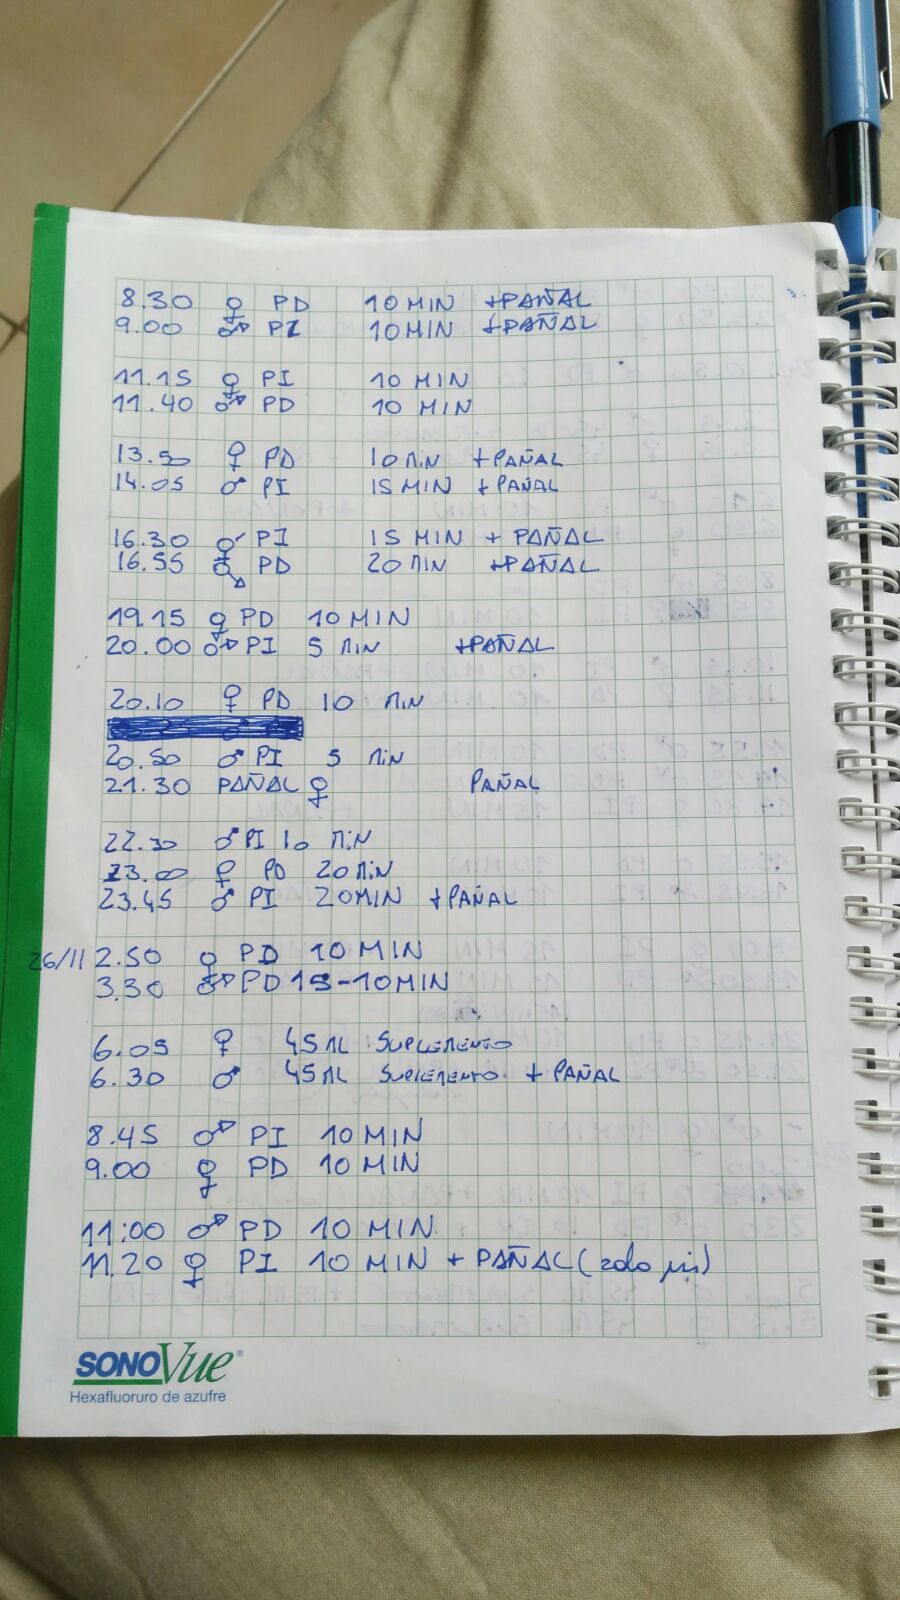 8.30 ♀ PD 10 MIN +PAÑAL
9.00 ♂ PI 10 MIN +PAÑAL
11.15 ♀ PI 10 MIN
11.40 ♂ PD 10 MIN
13.50 ♀ PD 10 MIN +PAÑAL
14.05 ♂ PI 15 MIN +PAÑAL
16.30 ♀ PI 15 MIN + PAÑAL
16.55 ♂ PD 20 MIN +PAÑAL
19.15 ♀ PD 10 MIN
20.00 ♂ PI 5 MIN +PAÑAL
20.10 ♀ PD 10 MIN
20.50 ♂ PI 5 MIN
21.30 PAÑAL ♀ PAÑAL
22.30 ♂ PI 10 MIN
23.00 ♀ PD 20 MIN
23.45 ♂ PI 20 MIN +PAÑAL
26/11 2.50 ♀ PD 10 MIN
3.30 ♂ PD 15-10 MIN
6.05 ♀ 45 ML SUPLEMENTO
6.30 ♂ 45 ML SUPLEMENTO + PAÑAL
8.45 ♂ PI 10 MIN
9.00 ♀ PD 10 MIN
11:00 ♂ PD 10 MIN
11.20 ♀ PI 10 MIN + PAÑAL (solo pis)
SONOVue®
Hexafluoruro de azufre